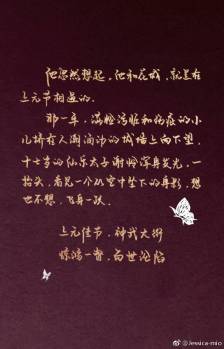 他忽然想起，他和花城，就是在
上元节相遇的。
那一年，满脸污脏和伤痕的小
儿挤在人潮汹涌的城墙上向下望，
十七岁的仙乐太子谢怜浑身发光，一
抬头，看见一个从空中坠下的身影，想
也不想，飞身一跃。
上元佳节，神武大街
惊鸿一瞥，百世沦陷
@Jessica-mio